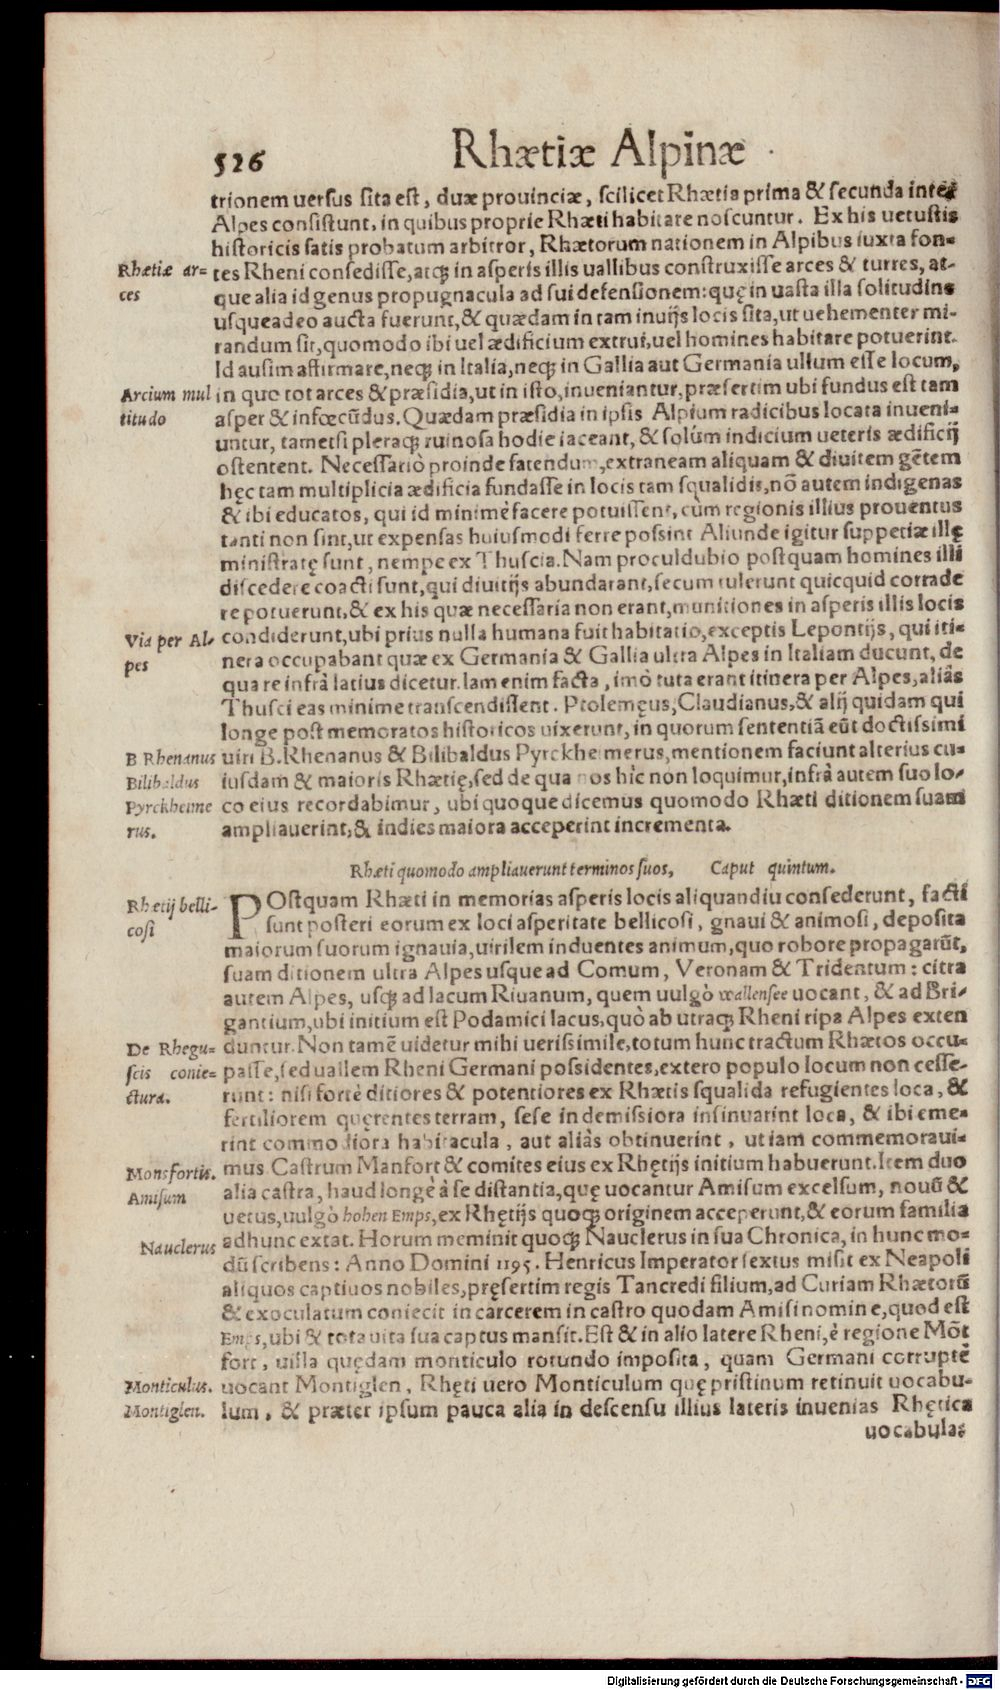 526 Rhætiæ Alpinæ
trionem uersus sita est, duæ prouinciæ, scilicet Rhætia prima & secunda inter
Alpes consistunt, in quibus proprie Rhæti habitare noscuntur. Ex his uetustis
historicis satis probatum arbitror, Rhætorum nationem in Alpibus iuxta fon=
Rhætiæ ar=
ces
tes Rheni consedisse, atq; in asperis illis uallibus construxisse arces & turres, at-
que alia id genus propugnacula ad sui defensionem: quę in uasta illa solitudine
usqueadeo aucta fuerunt, & quædam in tam inuijs locis sita, ut uehementer mi-
randum sit, quomodo ibi uel ædificium extrui, uel homines habitare potuerint.
Id ausim affirmare, neq; in Italia, neq; in Gallia aut Germania ullum esse locum,
Arcium mul
titudo
in quo tot arces & præsidia, ut in isto, inueniantur, præsertim ubi fundus est tam
asper & infœcūdus. Quædam præsidia in ipsis Alpium radicibus locata inueni=
untur, tametsi pleraq; ruinosa hodie iaceant, & solùm indicium ueteris ædificij
ostentent. Necessariò proinde fatendum, extraneam aliquam & diuitem gētem
hęc tam multiplicia ædificia fundasse in locis tam squalidis, nō autem indigenas
& ibi educatos, qui id minimè facere potuissent, cùm regionis illius prouentus
tanti non sint, ut expensas huiusmodi ferre possint Aliunde igitur suppetiæ illę
ministratę sunt, nempe ex Thuscia. Nam proculdubio postquam homines illi
discedere coacti sunt, qui diuitijs abundarant, secum tulerunt quicquid corrade
re potuerunt, & ex his quæ necessaria non erant, munitiones in asperis illis locis
Via per Al-
pes
condiderunt, ubi prius nulla humana fuit habitatio, exceptis Lepontijs, qui iti=
nera occupabant quæ ex Germania & Gallia ultra Alpes in Italiam ducunt, de
qua re infrà latius dicetur. Iam enim facta, imò tuta erant itinera per Alpes, aliâs
Thusci eas minime transcendissent. Ptolemęus, Claudianus, & alij quidam qui
longe post memoratos historicos uixerunt, in quorum sententiā eūt doctissimi
B Rhenanus
Bilibaldus
Pyrckheime
rus.
uiri B. Rhenanus & Bilibaldus Pyrckheimerus, mentionem faciunt alterius cu=
iusdam & maioris Rhætię, sed de qua nos hîc non loquimur, infrà autem suo lo-
co eius recordabimur, ubi quoque dicemus quomodo Rhæti ditionem suam
ampliauerint, & indies maiora acceperint incrementa.
Rhæti quomodo ampliauerunt terminos suos, Caput quintum.
Rhætij belli-
cosi
POstquam Rhæti in memorias asperis locis aliquandiu consederunt, facti
sunt posteri eorum ex loci asperitate bellicosi, gnaui & animosi, deposita
maiorum suorum ignauia, uirilem induentes animum, quo robore propagarūt,
suam ditionem ultra Alpes usque ad Comum, Veronam & Tridentum: citra
autem Alpes, usq; ad lacum Riuanum, quem uulgò wallensee uocant, & ad Bri-
gantium, ubi initium est Podamici lacus, quò ab utraq; Rheni ripa Alpes exten
De Rhegu-
scis conie=
ctura.
duntur. Non tamē uidetur mihi uerissimile, totum hunc tractum Rhætos occu-
passe, sed uallem Rheni Germani possidentes, extero populo locum non cesse-
runt: nisi fortè ditiores & potentiores ex Rhætis squalida refugientes loca, &
fertiliorem quęrentes terram, sese in demissiora insinuarint loca, & ibi eme=
rint commodiora habitacula, aut aliàs obtinuerint, ut iam commemoraui=
Monsfortis.
Amisum
mus. Castrum Manfort & comites eius ex Rhętijs initium habuerunt. Item duo
alia castra, haud longè à se distantia, quę uocantur Amisum excelsum, nouū &
uetus, uulgò hohen Emps, ex Rhętijs quoq; originem acceperunt, & eorum familia
Nauclerus
adhunc extat. Horum meminit quoq; Nauclerus in sua Chronica, in hunc mo=
dū scribens: Anno Domini 1195. Henricus Imperator sextus misit ex Neapoli
aliquos captiuos nobiles, pręsertim regis Tancredi filium, ad Curiam Rhætorū
& exoculatum coniecit in carcerem in castro quodam Amisi nomine, quod est
Emps, ubi & tota uita sua captus mansit. Est & in alio latere Rheni, è regione Mōt
fort, uilla quędam monticulo rotundo imposita, quam Germani corruptè
Monticulus.
Montiglen.
uocant Montiglen, Rhęti uero Monticulum quę pristinum retinuit uocabu-
lum, & præter ipsum pauca alia in descensu illius lateris inuenias Rhętica
uocabula:
Digitalisierung gefördert durch die Deutsche Forschungsgemeinschaft - DFG